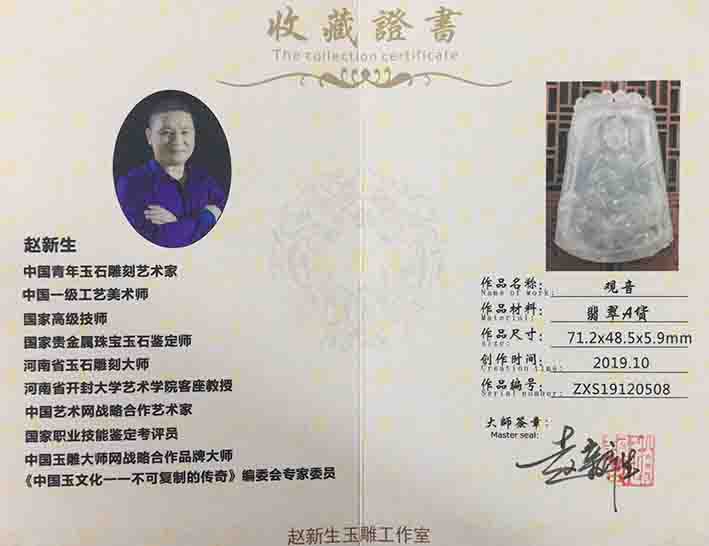 收藏證書
The collection certificate
赵新生
中国青年玉石雕刻艺术家
中国一级工艺美术师
国家高级技师
国家贵金属珠宝玉石鉴定师
河南省玉石雕刻大师
河南省开封大学艺术学院客座教授
中国艺术网战略合作艺术家
国家职业技能鉴定考评员
中国玉雕大师网战略合作品牌大师
《中国玉文化一一不可复制的传奇》编委会专家委员
作品名称： 观音
Name of work:
作品材料： 翡翠A货
Material:
作品尺寸： 71.2x48.5x5.9mm
Size:
创作时间： 2019.10
Creation time:
作品编号： ZXS19120508
Serial number:
大師签章：
Master seal:
赵新生
赵新生玉雕工作室